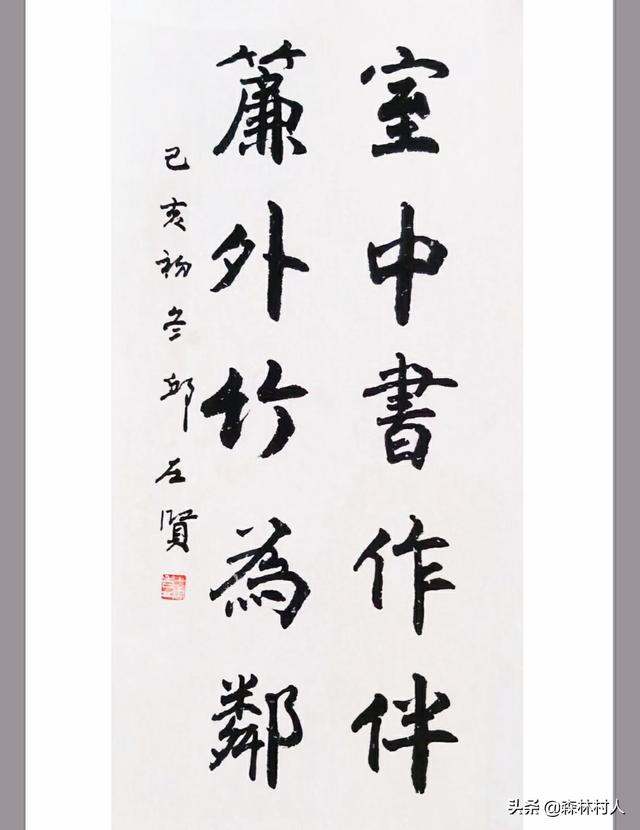 室中書作伴
簾外竹為鄰
己亥初冬邱左賢
头条 @森林村人